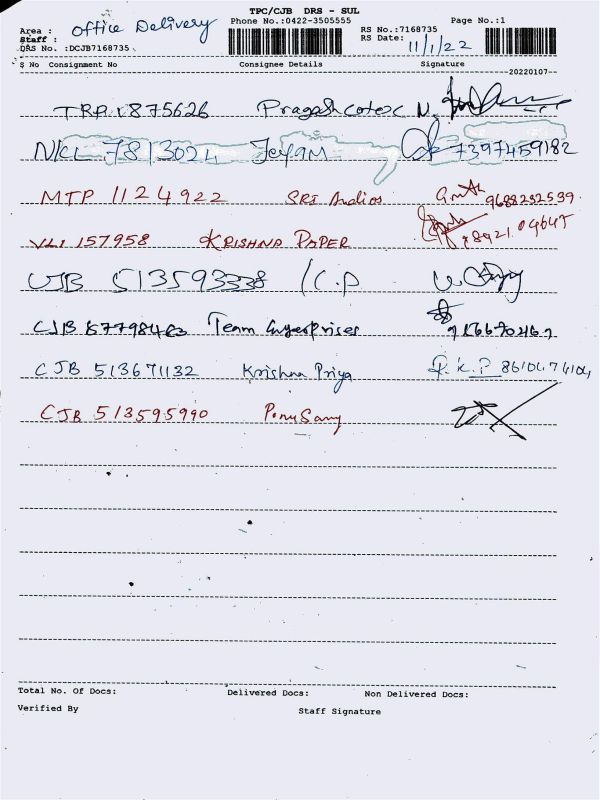 TPC/CJB DRS - SUL
Area : Office Delivery Phone No.:0422-3505555 Page No.:1
Staff : RS No.:7168735
DRS No. :DCJB7168735 RS Date: 11/1/22
S No Consignment No Consignee Details Signature
20220107
TRP 1875626 Pragash cotex
NKL 7813024 Jeyam 7397459182
MTP 1124922 SRI Audios 9688232539
VLI 157958 KRISHNA PAPER
CJB
CJB Team Enterprises
CJB 513671132 Krishna Priya
CJB 513595990 PonuSamy
Total No. Of Docs: Delivered Docs: Non Delivered Docs:
Verified By Staff Signature